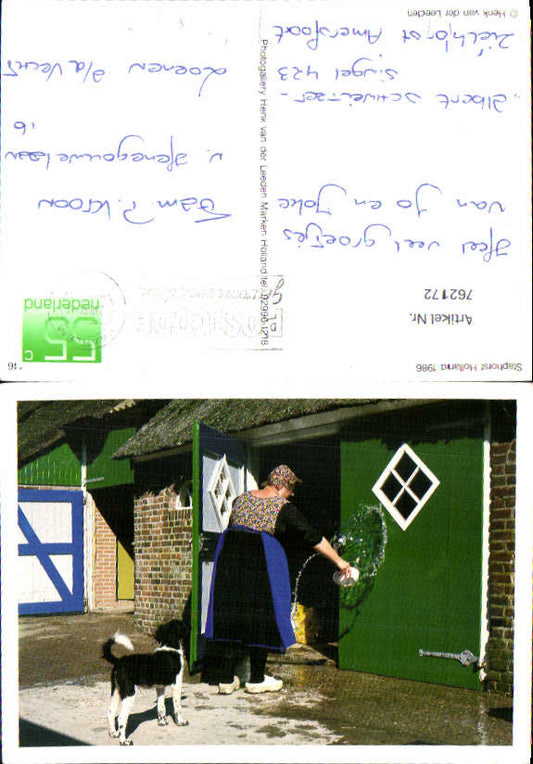 Staphorst Holland 1986
Artikel Nr.
762172
Heel veel groetjes
van Jo en Joke
Albert Schweitzer-
singel 423
Zielhorst Amersfoort
© Henk van der Leeden
Photogallery Henk van der Leeden Marken Holland tel. 02996-1218
POSTCODE
55 c
nederland
Fam P. Kroon
v. Henegouwelaan
16
Loenen a/d Vecht